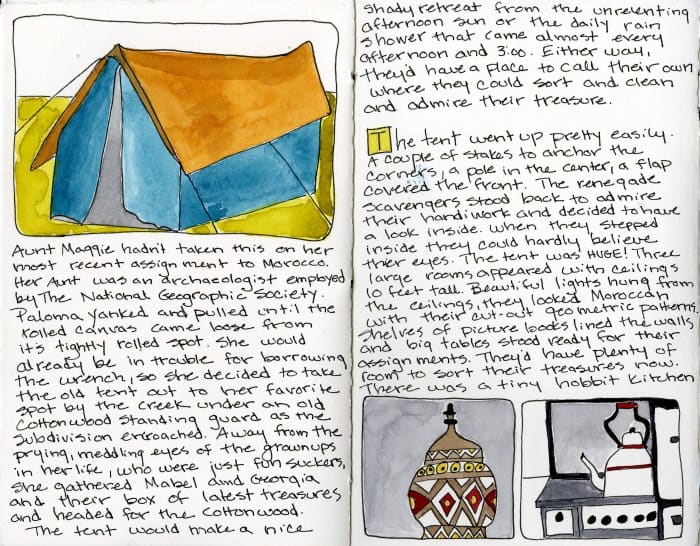 Aunt Maggie hadn't taken this on her
most recent assignment to Morocco.
Her Aunt was an archaeologist employed
by The National Geographic Society.
Paloma yanked and pulled until the
rolled canvas came loose from
it's tightly rolled spot. She would
already be in trouble for borrowing
the wrench, so she decided to take
the old tent out to her favorite
spot by the creek under an old
Cottonwood standing guard as the
subdivision encroached. Away from the
prying, meddling eyes of the grownups
in her life, who were just fun suckers,
she gathered Mabel and Georgia
and their box of latest treasures
and headed for the Cottonwood.
The tent would make a nice
shady retreat from the unrelenting
afternoon sun or the daily rain
shower that came almost every
afternoon and 3:00. Either way,
they'd have a place to call their own
where they could sort and clean
and admire their treasure.
The tent went up pretty easily.
A couple of stakes to anchor the
corners, a pole in the center, a flap
covered the front. The renegade
scavengers stood back to admire
their handiwork and decided to have
a look inside. When they stepped
inside they could hardly believe
thier eyes. The tent was HUGE! Three
large rooms appeared with ceilings
10 feet tall. Beautiful lights hung from
the ceilings, they looked Moroccan
with their cut-out geometric patterns.
Shelves of picture books lined the walls
and big tables stood ready for their
assignments. They'd have plenty of
room to sort their treasures now.
There was a tiny hobbit kitchen